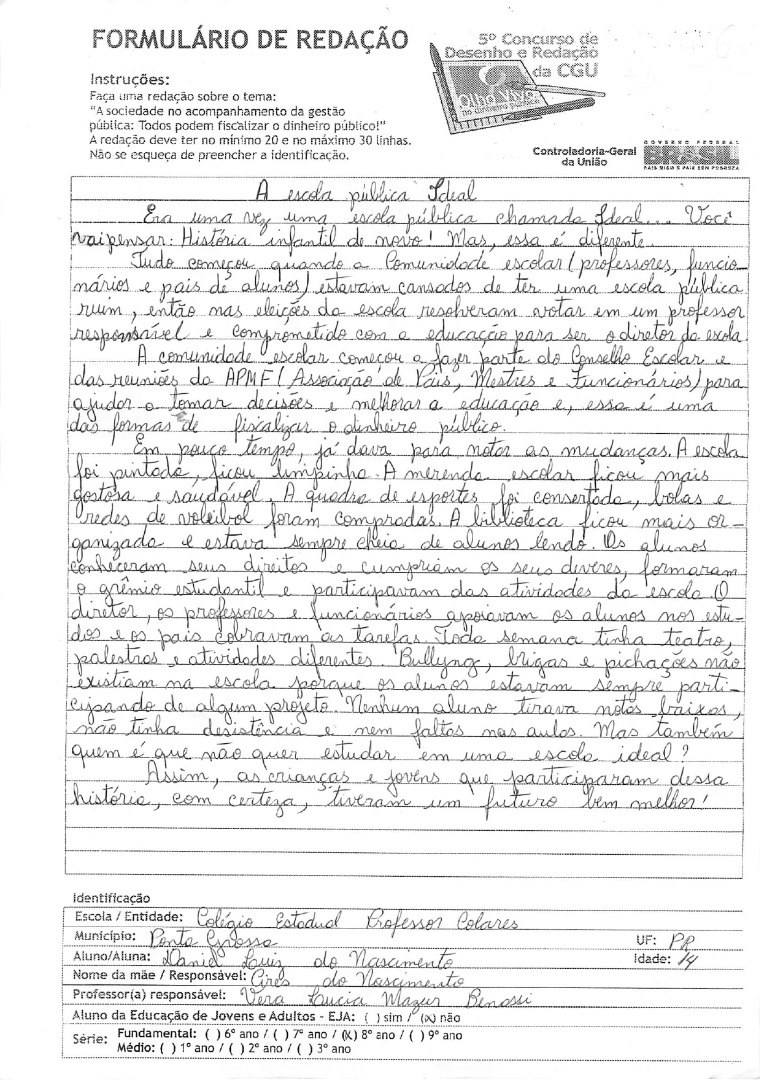 FORMULÁRIO DE REDAÇÃO
5º Concurso de
Desenho e Redação
da CGU
Olho Vivo
no dinheiro público
Instruções:
Faça uma redação sobre o tema:
"A sociedade no acompanhamento da gestão
pública: Todos podem fiscalizar o dinheiro público!"
A redação deve ter no mínimo 20 e no máximo 30 linhas.
Não se esqueça de preencher a identificação.
Controladoria-Geral
da União
GOVERNO FEDERAL
BRASIL
PAÍS RICO É PAÍS SEM POBREZA
A escola pública Ideal
Era uma vez uma escola pública chamada Ideal... Você
vai pensar: História infantil de novo! Mas, essa é diferente.
Tudo começou quando a Comunidade escolar (professores, funcio-
nários e pais de alunos) estavam cansados de ter uma escola pública
ruim, então nas eleições da escola resolveram votar em um professor
responsável e comprometido com a educação para ser o diretor da escola.
A comunidade escolar começou a fazer parte do Conselho Escolar e
das reuniões da APMF (Associação de Pais, Mestres e Funcionários) para
ajudar a tomar decisões e melhorar a educação e, essa é uma
das formas de fiscalizar o dinheiro público.
Em pouco tempo, já dava para notar as mudanças. A escola
foi pintada, ficou limpinha. A merenda escolar ficou mais
gostosa e saudável. A quadra de esportes foi consertada, bolas e
redes de voleibol foram compradas. A biblioteca ficou mais or-
ganizada e estava sempre cheia de alunos lendo. Os alunos
conheceram seus direitos e cumpriam os seus deveres, formaram
o grêmio estudantil e participavam das atividades da escola. O
diretor, os professores e funcionários apoiavam os alunos nos estu-
dos e os pais cobravam as tarefas. Toda semana tinha teatro,
palestras e atividades diferentes. Bullyng, brigas e pichações não
existiam na escola porque os alunos estavam sempre parti-
cipando de algum projeto. Nenhum aluno tirava notas baixas,
não tinha desistência e nem faltas nas aulas. Mas também
quem é que não quer estudar em uma escola ideal?
Assim, as crianças e jovens que participaram dessa
história, com certeza, tiveram um futuro bem melhor!
Identificação
Escola / Entidade: Colégio Estadual Professor Colares
Município: Ponta Grossa UF: PR
Aluno/Aluna: Daniel Luiz do Nascimento Idade: 14
Nome da mãe / Responsável: Cires do Nascimento
Professor(a) responsável: Vera Lucia Mazur Benassi
Aluno da Educação de Jovens e Adultos - EJA: ( ) sim / (x) não
Série: Fundamental: ( ) 6º ano / ( ) 7º ano / (X) 8º ano / ( ) 9º ano
Médio: ( ) 1º ano / ( ) 2º ano / ( ) 3º ano